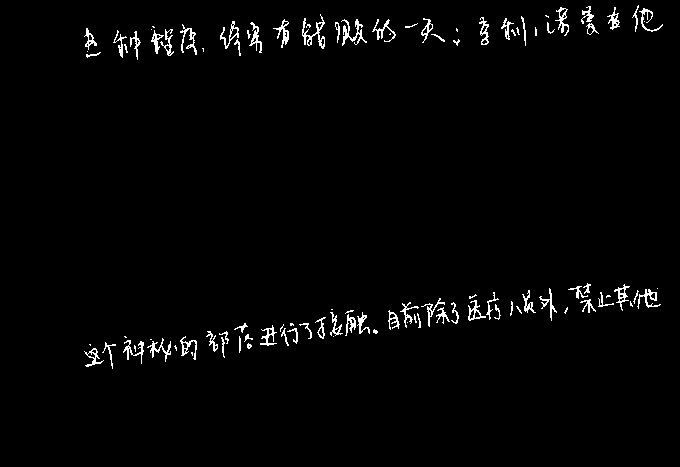 这种程度,终究有错败的一天;李利,诺曼在他
这个神秘的部落进行了接触。目前除了医疗人员外,禁止其他